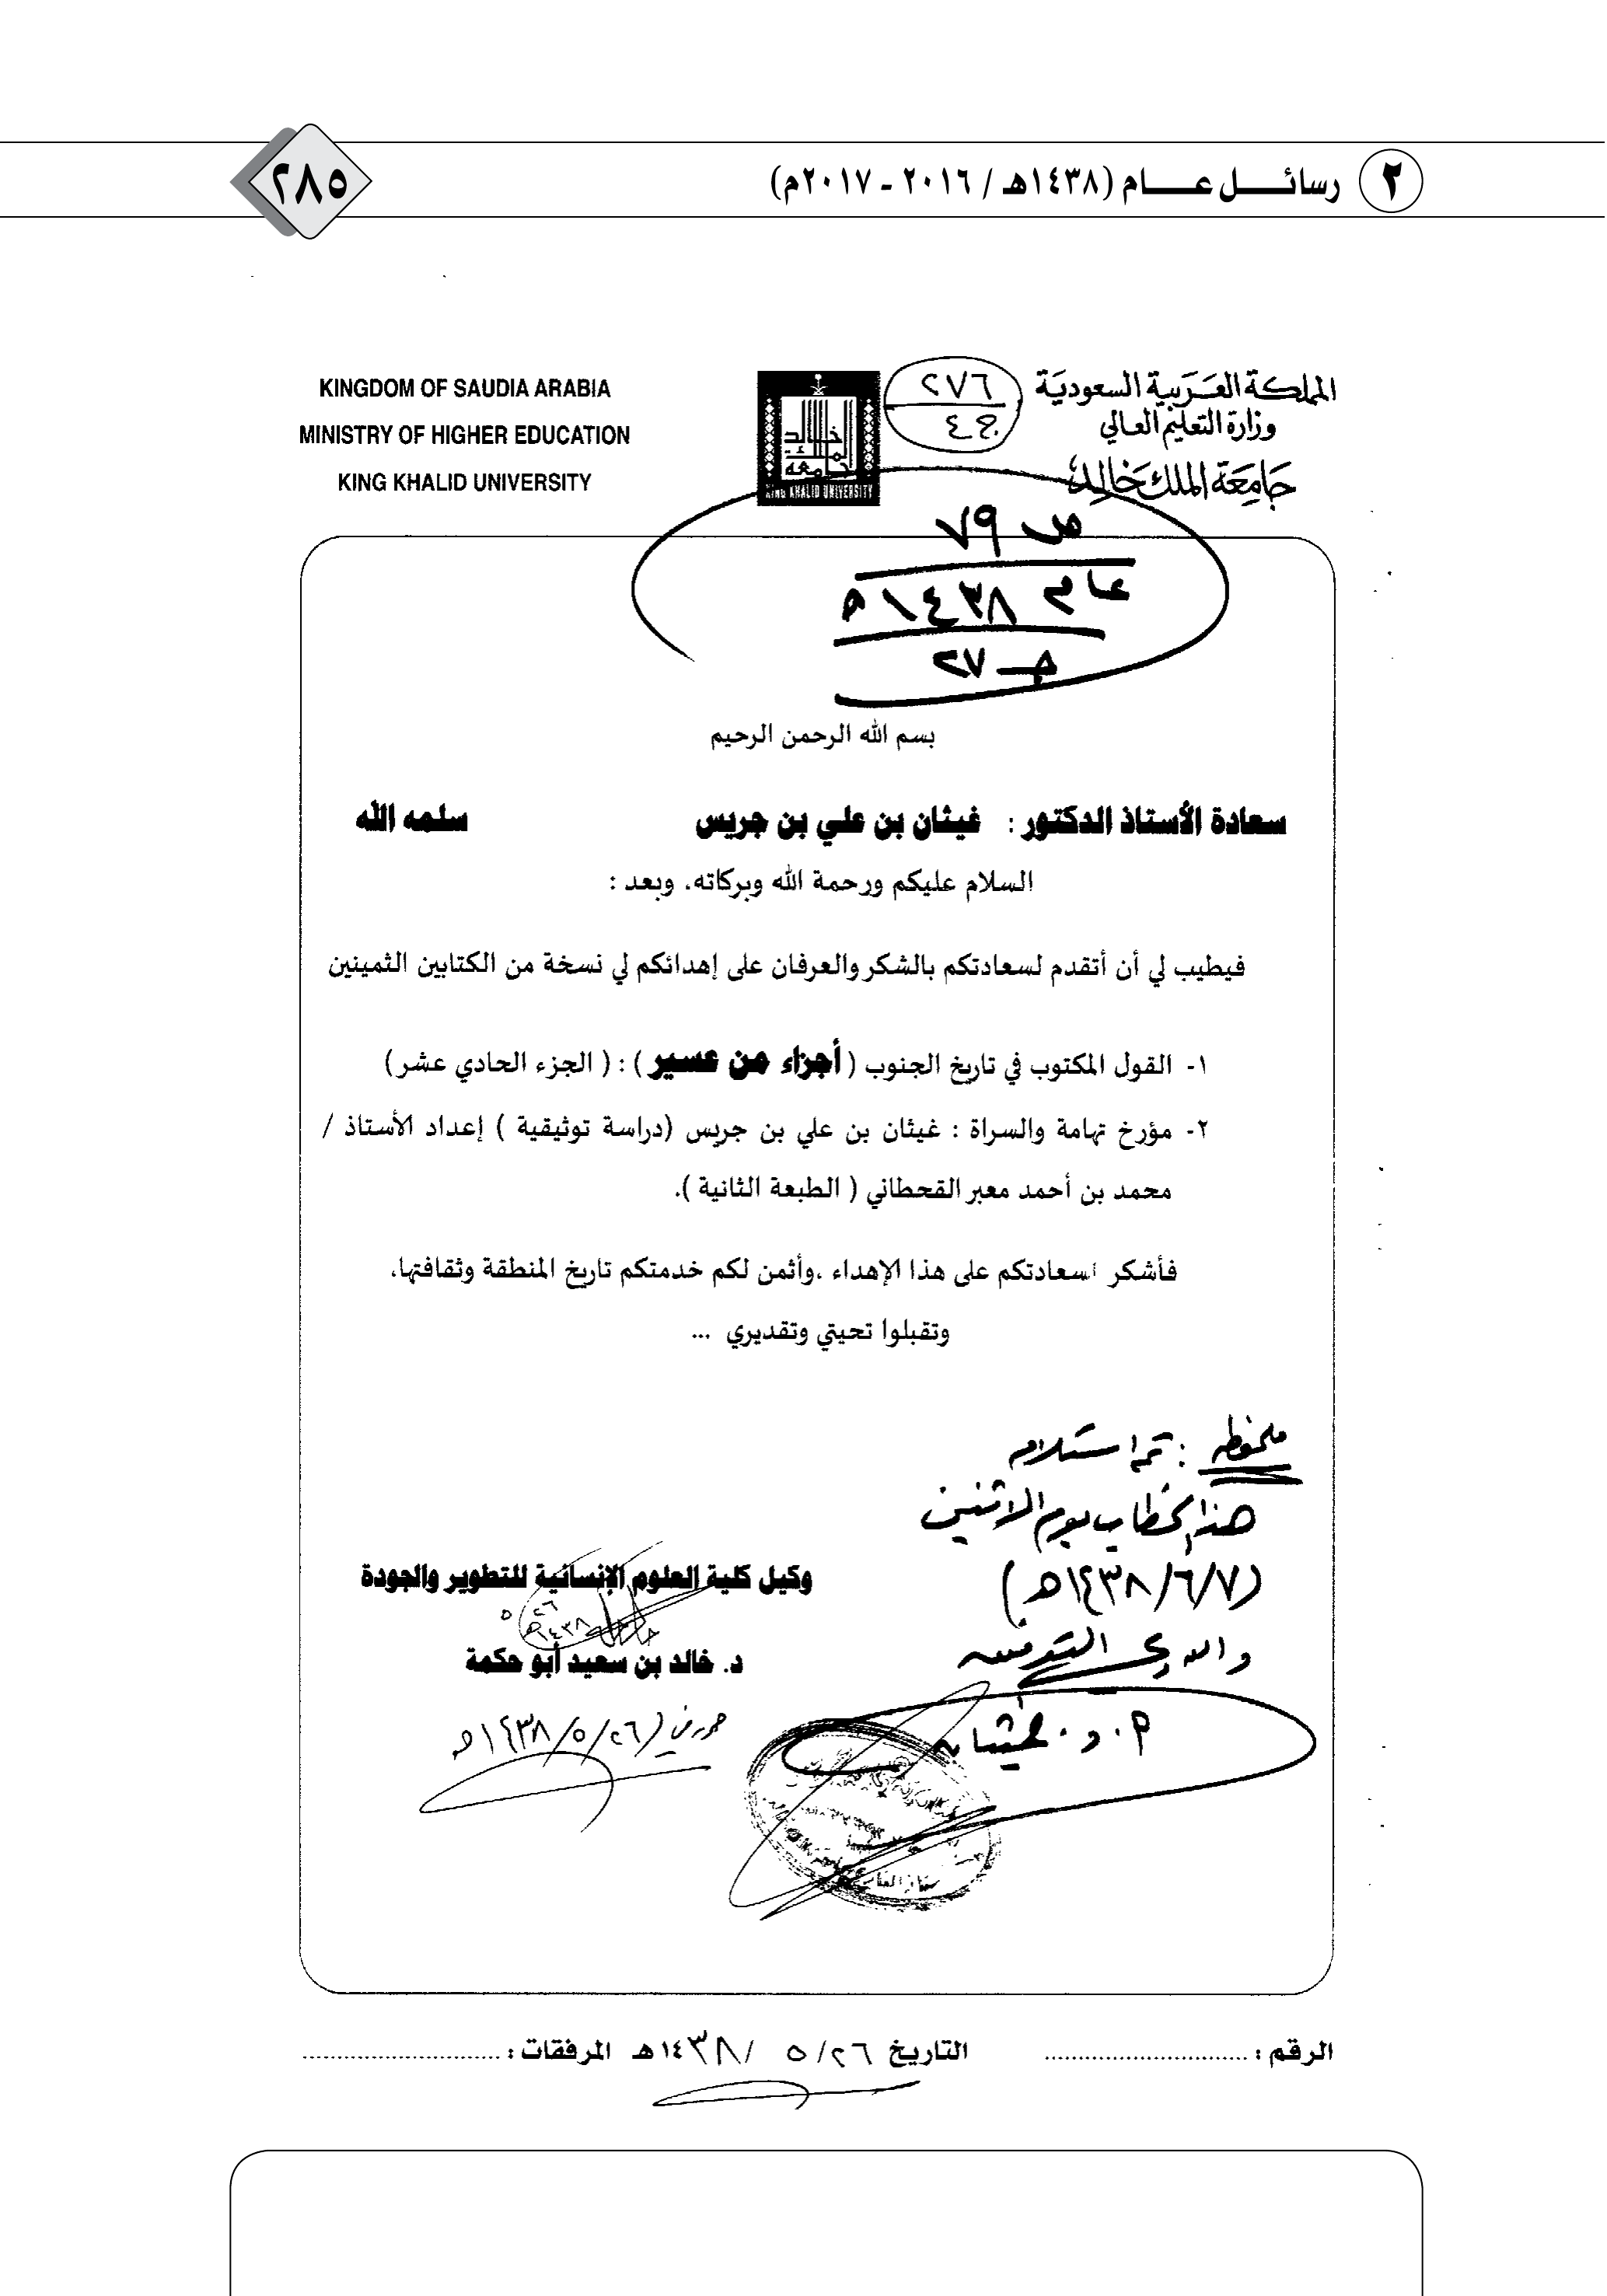 ٢ رسائل عام (١٤٣٨هـ / ٢٠١٦ - ٢٠١٧م)
٢٨٥
المملكة العربية السعودية
وزارة التعليم العالي
جامعة الملك خالد
٢٧٦
ج ٤
جامعة الملك خالد
KING KHALID UNIVERSITY
KINGDOM OF SAUDIA ARABIA
MINISTRY OF HIGHER EDUCATION
KING KHALID UNIVERSITY
ص ٧٩
عام ١٤٣٨ه
جـ ٢٧
بسم الله الرحمن الرحيم
سعادة الأستاذ الدكتور : غيثان بن علي بن جريس سلمه الله
السلام عليكم ورحمة الله وبركاته، وبعد :
فيطيب لي أن أتقدم لسعادتكم بالشكر والعرفان على إهدائكم لي نسخة من الكتابين الثمينين
١- القول المكتوب في تاريخ الجنوب ( أجزاء من عسير ) : ( الجزء الحادي عشر )
٢- مؤرخ تهامة والسراة : غيثان بن علي بن جريس (دراسة توثيقية ) إعداد الأستاذ /
محمد بن أحمد معبر القحطاني ( الطبعة الثانية ).
فأشكر لسعادتكم على هذا الإهداء ،وأثمن لكم خدمتكم تاريخ المنطقة وثقافتها،
وتقبلوا تحيتي وتقديري ...
ملحوظه : تم استلام
هذا الخطاب يوم الاثنين
(١٤٣٨/٦/٧هـ)
والله ولي التوفيق
أ. د. غيثان
وكيل كلية العلوم الإنسانية للتطوير والجودة
٢٦ ٥
١٤٣٨هـ
د. خالد بن سعيد أبو حكمة
حرر في (١٤٣٨/٥/٢٦هـ
الرقم : .............................. التاريخ ٢٦/ ٥ /١٤٣٨هـ المرفقات : ..............................